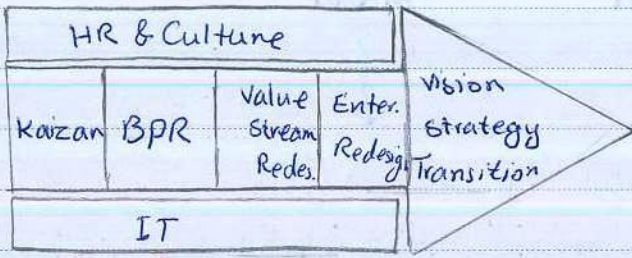 HR & Culture
Kaizan
BPR
Value
Stream
Redes.
Enter.
Redesig.
Vision
Strategy
Transition
IT